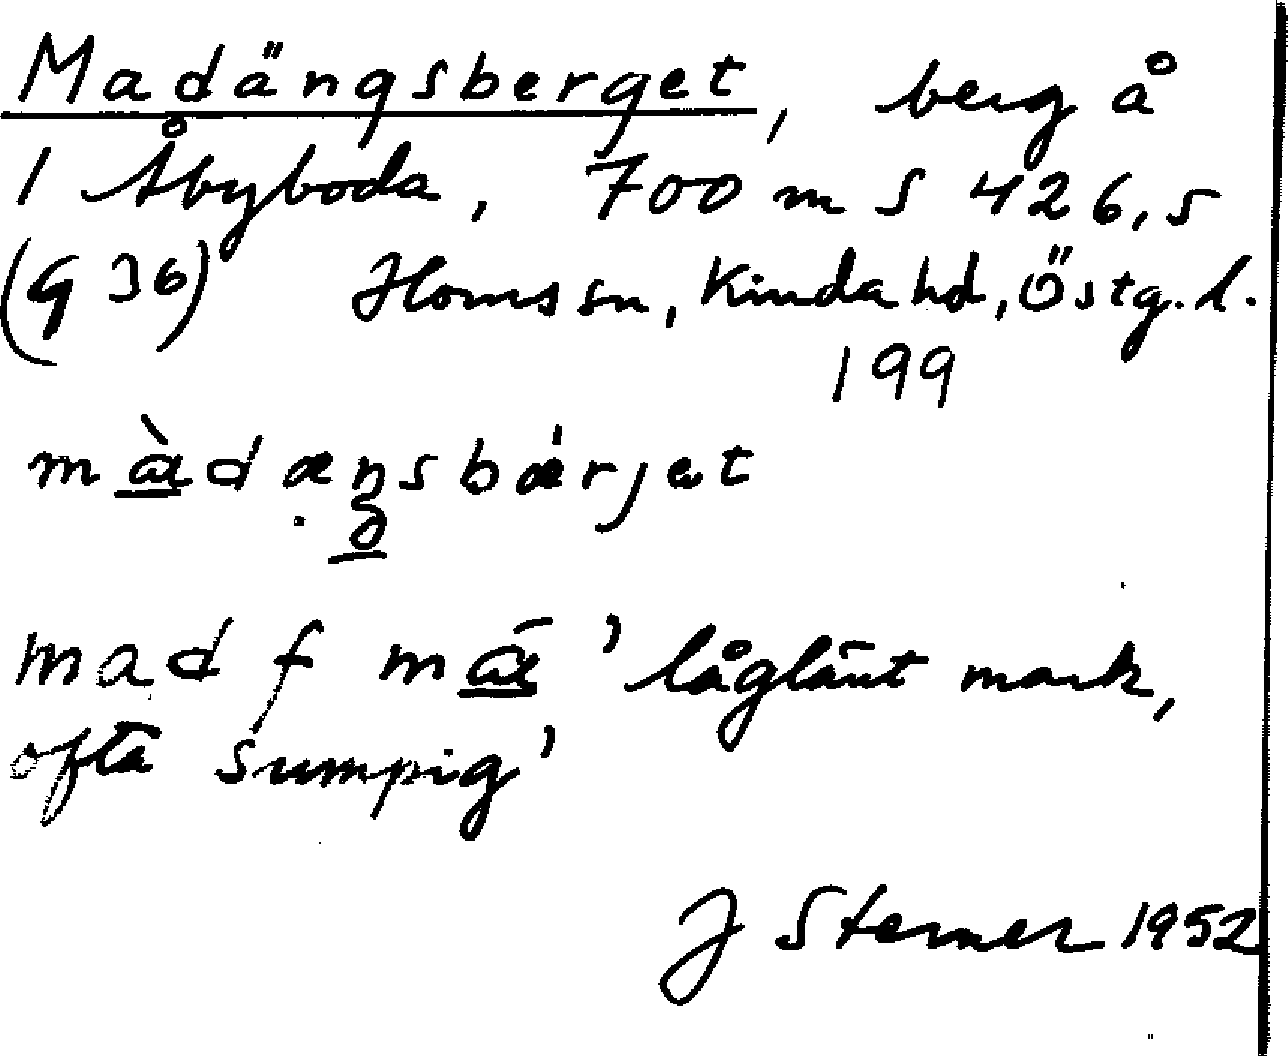 Madängsberget, berg å
1 Åbyboda, 700 m S 426,5
(G 36) Horns sn, Kinda hd, Östg. l.
199
màdæŋsbǽrjet
mad f mā́ 'låglänt mark,
ofta sumpig'
J Sterner 1952